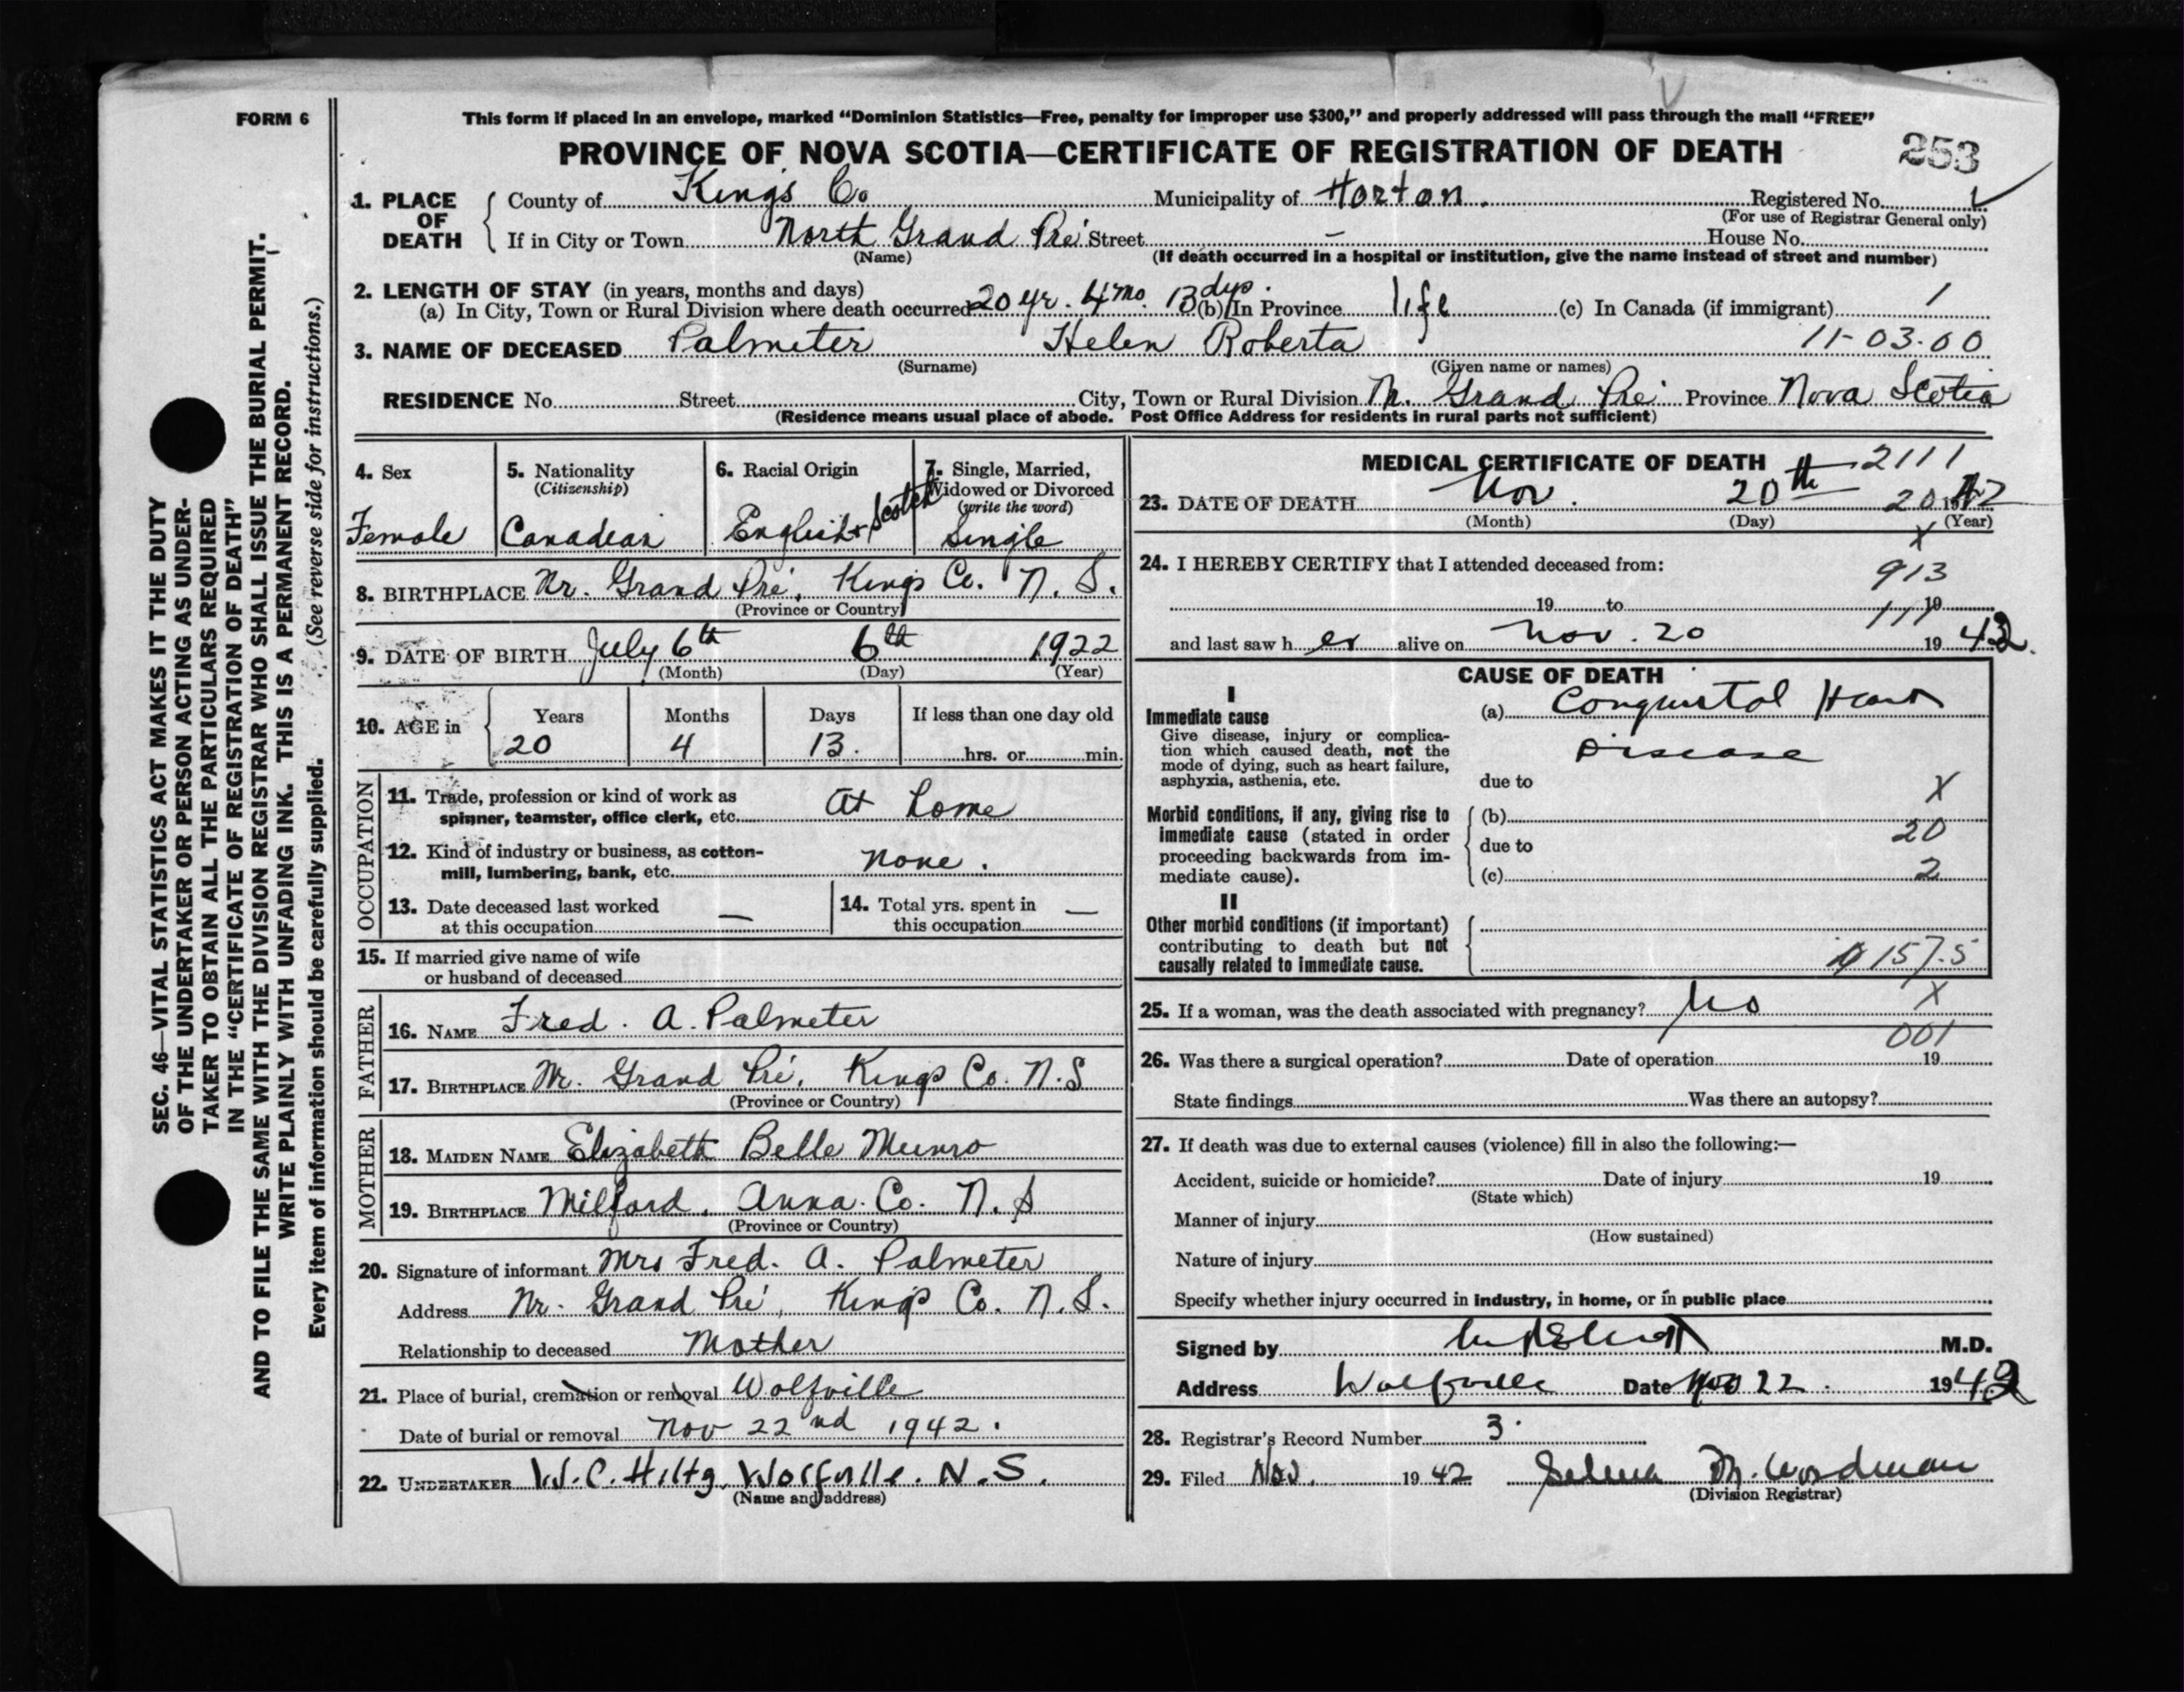 FORM 6
This form if placed in an envelope, marked “Dominion Statistics—Free, penalty for improper use $300,” and properly addressed will pass through the mail “FREE”
PROVINCE OF NOVA SCOTIA—CERTIFICATE OF REGISTRATION OF DEATH
253
1. PLACE OF DEATH
County of Kings Co Municipality of Horton. Registered No.
(For use of Registrar General only)
If in City or Town North Grand Pré Street – House No.
(Name) (If death occurred in a hospital or institution, give the name instead of street and number)
2. LENGTH OF STAY (in years, months and days)
(a) In City, Town or Rural Division where death occurred 20 yr. 4 mo. 13 dys. (b) In Province life (c) In Canada (if immigrant) /
3. NAME OF DECEASED Palmeter Helen Roberta 11-03.00
(Surname) (Given name or names)
RESIDENCE No. Street City, Town or Rural Division N. Grand Pré Province Nova Scotia
(Residence means usual place of abode. Post Office Address for residents in rural parts not sufficient)
4. Sex Female
5. Nationality (Citizenship) Canadian
6. Racial Origin English & Scotch
7. Single, Married, Widowed or Divorced (write the word) Single
8. BIRTHPLACE Nr. Grand Pré, Kings Co. N. S.
(Province or Country)
9. DATE OF BIRTH July 6th 6th 1922
(Month) (Day) (Year)
10. AGE in Years Months Days If less than one day old
20 4 13. hrs. or min.
OCCUPATION
11. Trade, profession or kind of work as spinner, teamster, office clerk, etc. At home
12. Kind of industry or business, as cotton-mill, lumbering, bank, etc. none.
13. Date deceased last worked at this occupation —
14. Total yrs. spent in this occupation —
15. If married give name of wife or husband of deceased
FATHER
16. NAME Fred. A. Palmeter
17. BIRTHPLACE Nr. Grand Pré, Kings Co. N.S
(Province or Country)
MOTHER
18. MAIDEN NAME Elizabeth Belle Munro
19. BIRTHPLACE Milford, Anna. Co. N. S
(Province or Country)
20. Signature of informant Mrs Fred. A. Palmeter
Address Nr. Grand Pré, Kings Co. N. S.
Relationship to deceased Mother
21. Place of burial, cremation or removal Wolfville
Date of burial or removal Nov 22nd 1942.
22. UNDERTAKER W. C. Hiltz, Wolfville. N. S.
(Name and address)
MEDICAL CERTIFICATE OF DEATH 2111
23. DATE OF DEATH Nov. 20th 20 1942
(Month) (Day) (Year)
X
24. I HEREBY CERTIFY that I attended deceased from:
913
19 to 19
111
and last saw her alive on Nov. 20 1942.
CAUSE OF DEATH
I
Immediate cause
Give disease, injury or complication which caused death, not the mode of dying, such as heart failure, asphyxia, asthenia, etc.
(a) Congenital Heart
Disease
due to
X
Morbid conditions, if any, giving rise to immediate cause (stated in order proceeding backwards from immediate cause).
(b)
20
due to
(c) 2
II
Other morbid conditions (if important) contributing to death but not causally related to immediate cause.
157.5
25. If a woman, was the death associated with pregnancy? No X
001
26. Was there a surgical operation? Date of operation 19
State findings Was there an autopsy?
27. If death was due to external causes (violence) fill in also the following:—
Accident, suicide or homicide? Date of injury 19
(State which)
Manner of injury
(How sustained)
Nature of injury
Specify whether injury occurred in industry, in home, or in public place
Signed by M.D.
Address Wolfville Date Nov 22. 1942
28. Registrar's Record Number 3.
29. Filed Nov. 1942 Selma M. Woodman
(Division Registrar)
SEC. 46—VITAL STATISTICS ACT MAKES IT THE DUTY
OF THE UNDERTAKER OR PERSON ACTING AS UNDER-
TAKER TO OBTAIN ALL THE PARTICULARS REQUIRED
IN THE “CERTIFICATE OF REGISTRATION OF DEATH”
AND TO FILE THE SAME WITH THE DIVISION REGISTRAR WHO SHALL ISSUE THE BURIAL PERMIT.
WRITE PLAINLY WITH UNFADING INK. THIS IS A PERMANENT RECORD.
Every item of information should be carefully supplied. (See reverse side for instructions.)